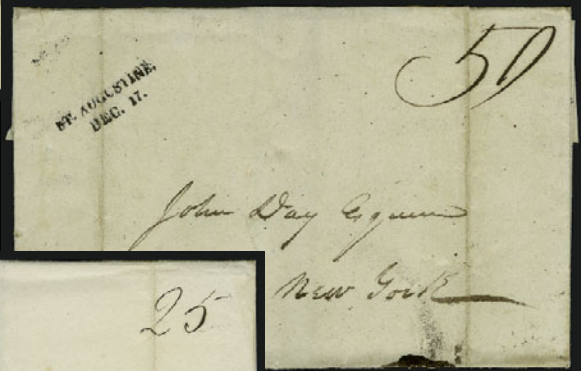 ST. AUGUSTINE,
DEC. 17.
50
John Day Esquire
New York
25